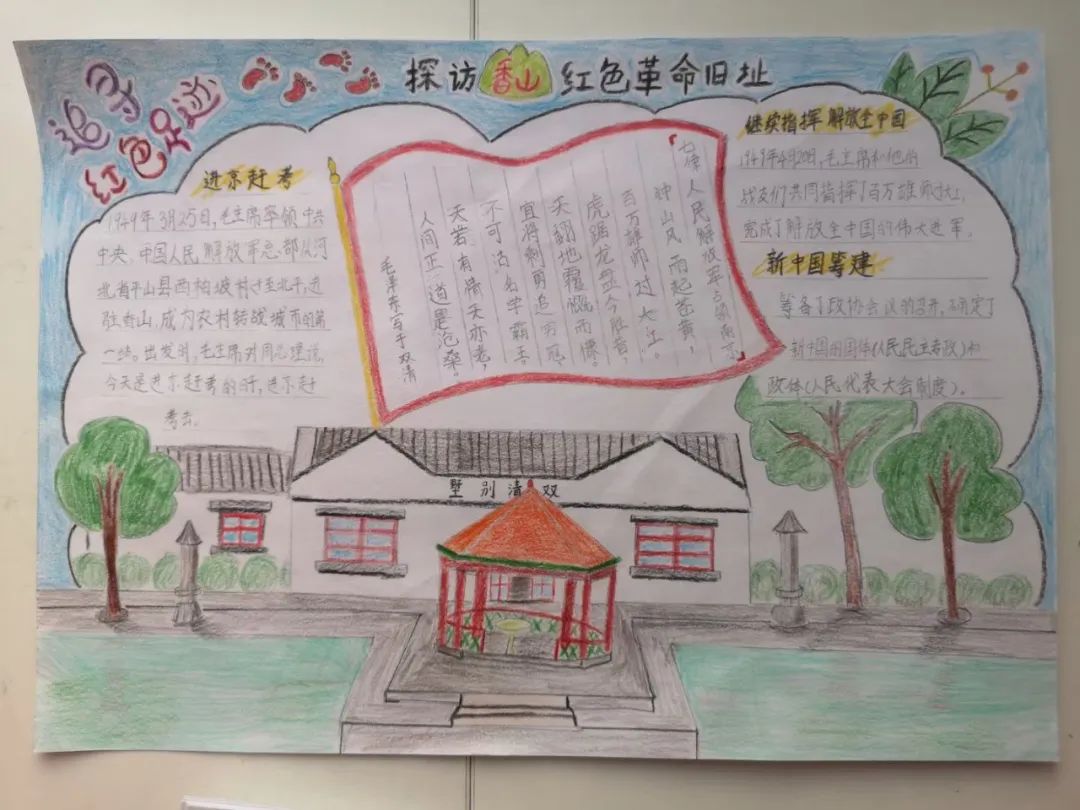 追寻
红色足迹
探访香山红色革命旧址
进京赶考
1949年3月25日,毛主席率领中共
中央、中国人民解放军总部从河
北省平山县西柏坡村迁至北平,进
驻香山,成为农村转战城市的第
一站。出发时,毛主席对周总理说,
今天是进京赶考的日子,进京赶
考去。
七律人民解放军占领南京
钟山风雨起苍黄,
百万雄师过大江。
虎踞龙盘今胜昔,
天翻地覆慨而慷。
宜将剩勇追穷寇,
不可沽名学霸王。
天若有情天亦老,
人间正道是沧桑。
毛泽东写于双清
继续指挥解放全中国
1949年4月20日,毛主席和他的
战友们共同指挥了百万雄师过大江,
完成了解放全中国的伟大进军。
新中国筹建
筹备了政协会议的召开,确定了
新中国的国体(人民民主专政)和
政体(人民代表大会制度)。
墅别清双